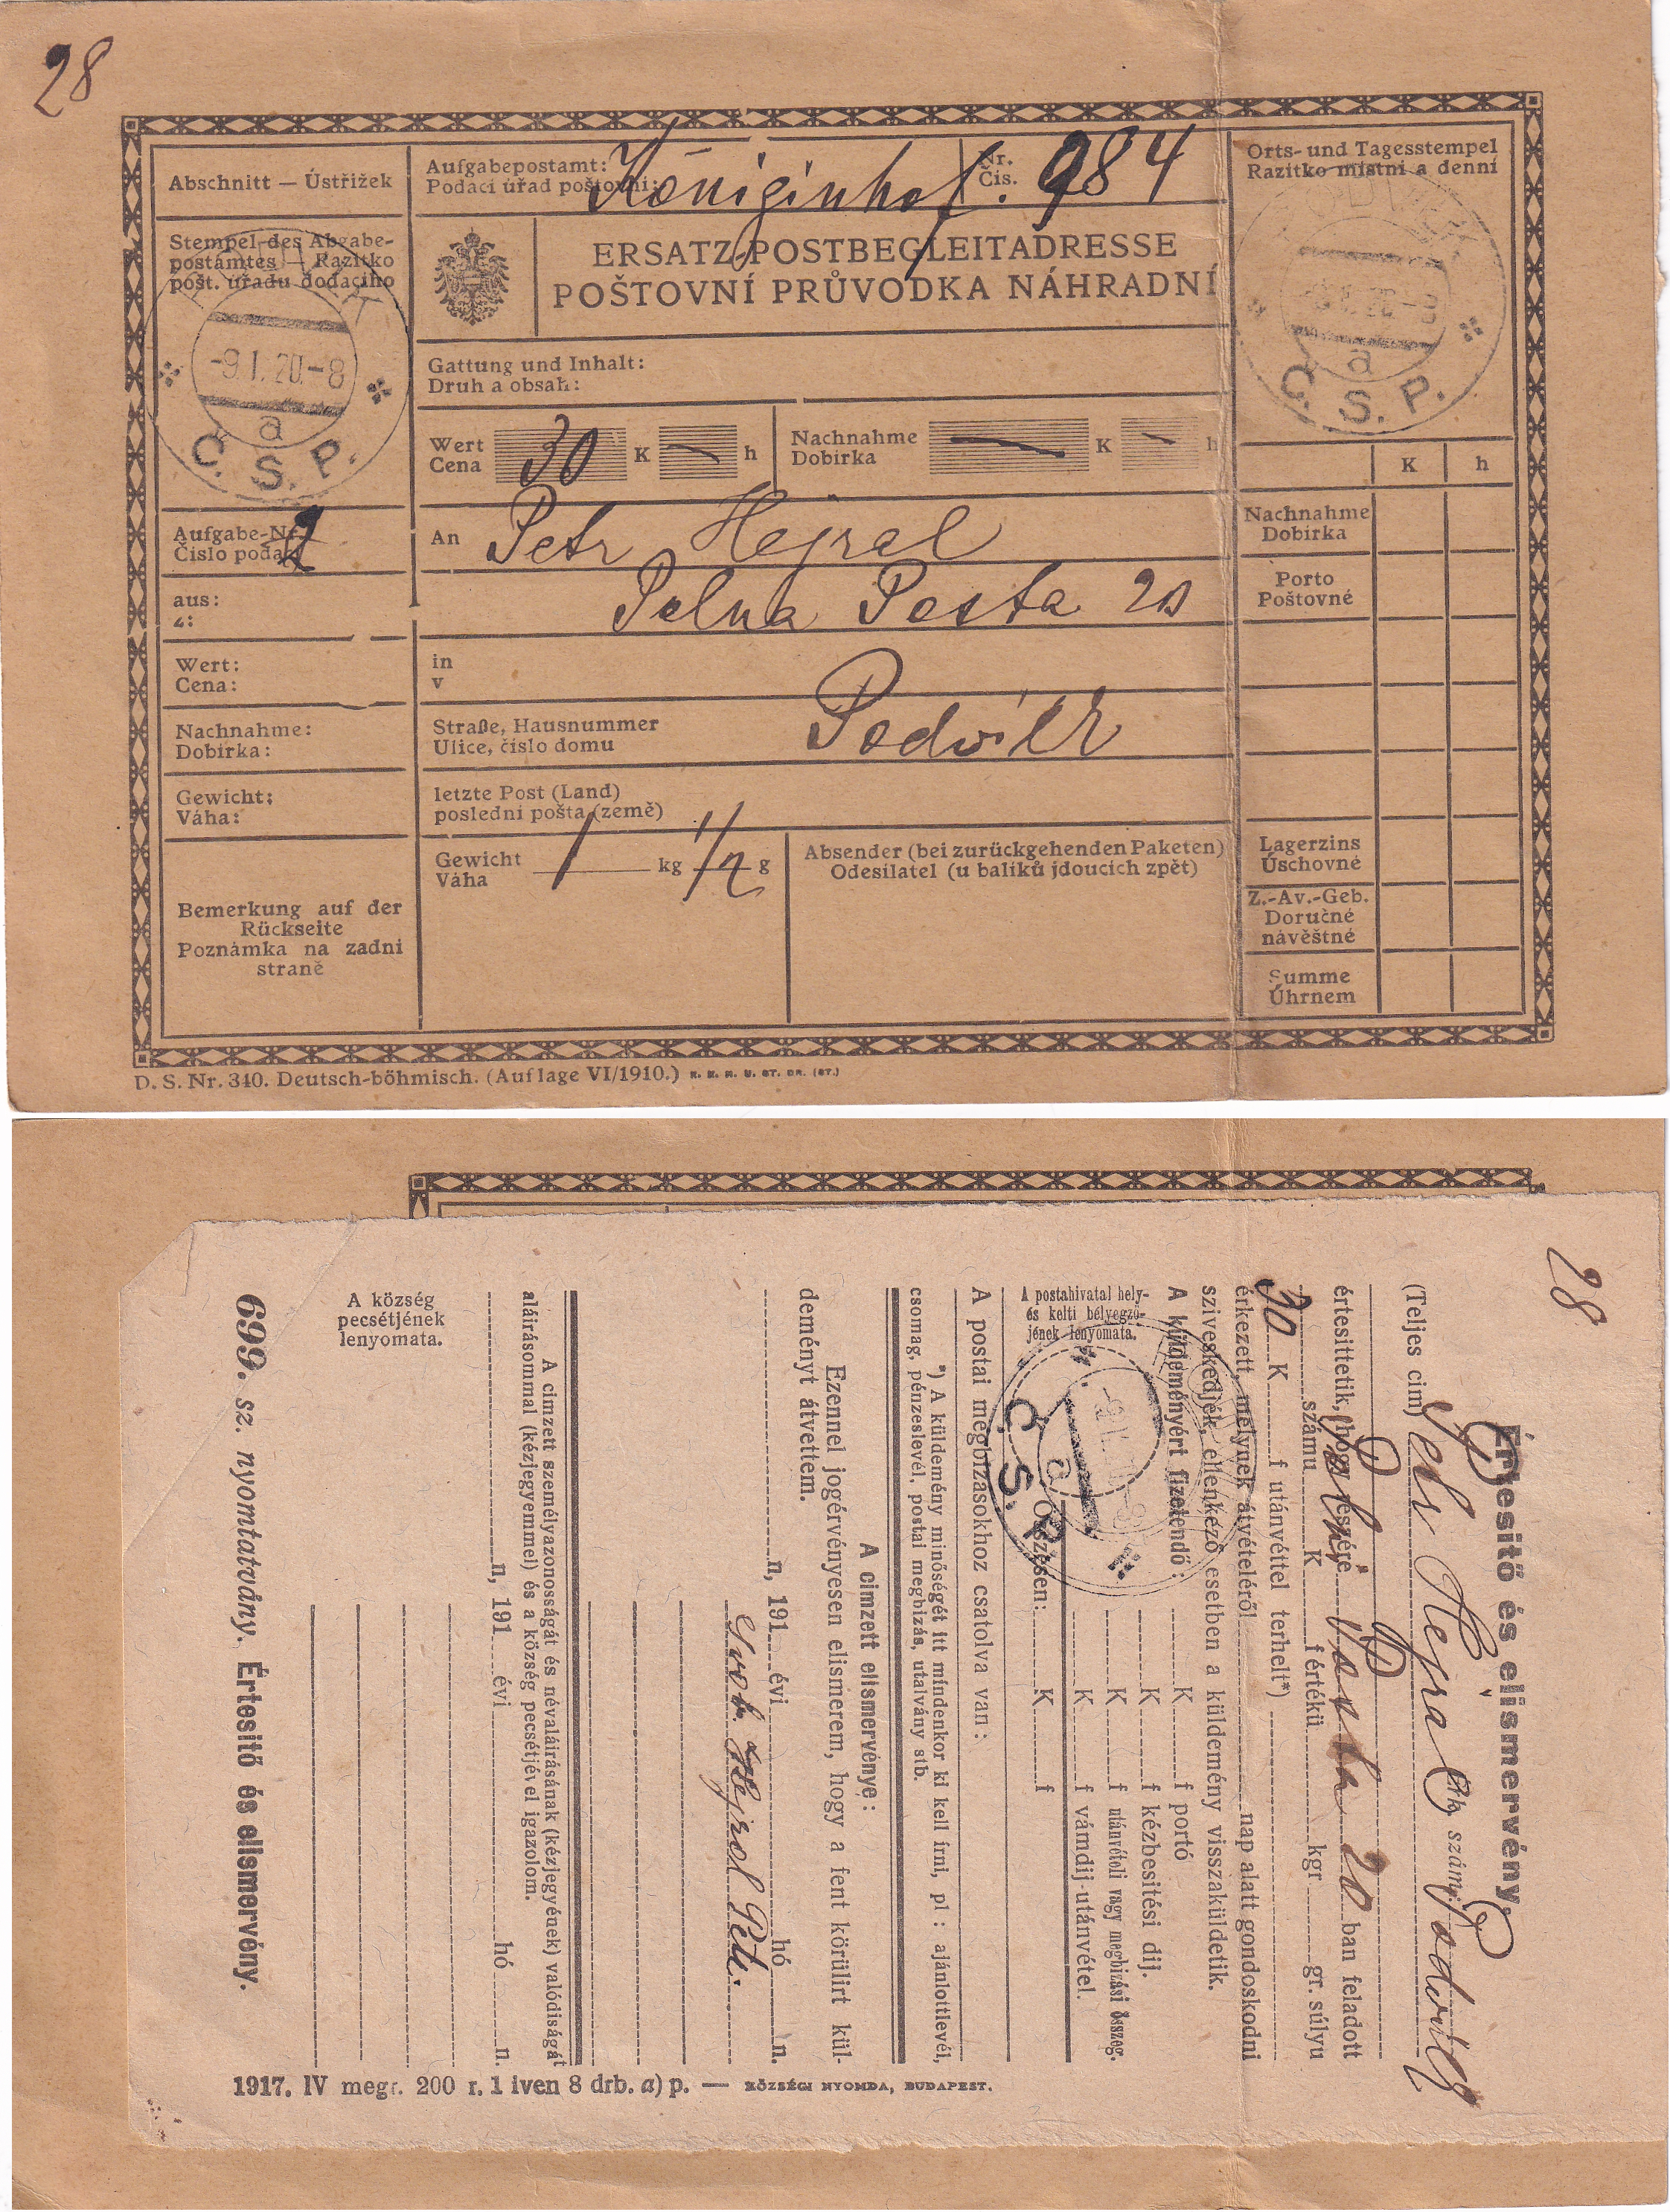 28
Abschnitt — Ústřižek
Aufgabepostamt:
Podací úřad poštovní:
Königinhof.
Nr.
Čís.
984
Orts- und Tagesstempel
Razítko místní a denní
Stempel des Abgabe-
postamtes — Razítko
pošt. úřadu dodacího
ERSATZ-POSTBEGLEITADRESSE
POŠTOVNÍ PRŮVODKA NÁHRADNÍ
-9.I.20.-8
a
Č. S. P.
a
Č. S. P.
Gattung und Inhalt:
Druh a obsah:
Wert
Cena
30 K — h
Nachnahme
Dobírka
— K — h
K h
Aufgabe-Nr.
Číslo podací
An Petr Hejral
Nachnahme
Dobírka
aus:
z:
Polna Posta 20
Porto
Poštovné
Wert:
Cena:
in
v
Nachnahme:
Dobírka:
Straße, Hausnummer
Ulice, číslo domu
Gewicht:
Váha:
letzte Post (Land)
poslední pošta (země)
Gewicht
Váha
1 kg 1/2 g
Absender (bei zurückgehenden Paketen)
Odesílatel (u balíků jdoucích zpět)
Lagerzins
Úschovné
Bemerkung auf der
Rückseite
Poznámka na zadní
straně
Z.-Av.-Geb.
Doručné
návěštné
Summe
Úhrnem
D. S. Nr. 340. Deutsch-böhmisch. (Auflage VI/1910.) K. K. H. U. ST. DR. (ST.)
28
Értesitő és elismervény.
(Teljes cim) Petr Hejral
számj.
értesittetik, hogy részére Polní Posta 20 ban feladott
számu K f értékü kgr gr. súlyu
30 K f utánvéttel terhelt*)
érkezett, melynek átvételéről nap alatt gondoskodni
sziveskedjék, ellenkező esetben a küldemény visszaküldetik.
A küldeményért fizetendő: K f portó
K f kézbesitési dij.
K f utánvételi vagy megbizási összeg.
K f vámdij-utánvétel.
Összesen: K f
A postahivatal hely-
és kelti bélyegző-
jének lenyomata.
a
Č. S. P.
A postai megbizásokhoz csatolva van:
*) A küldemény minőségét itt mindenkor ki kell írni, pl: ajánlottlevél,
csomag, pénzeslevél, postai megbizás, utalvány stb.
A cimzett elismervénye:
Ezennel jogérvényesen elismerem, hogy a fent körülirt kül-
deményt átvettem.
n, 191 évi hó n.
A cimzett személyazonosságát és névaláirásának (kézjegyének) valódiságát
aláirásommal (kézjegyemmel) és a község pecsétjével igazolom.
n, 191 évi hó n.
A község
pecsétjének
lenyomata.
699. sz. nyomtatvány. Értesitő és elismervény.
1917. IV megr. 200 r. 1 iven 8 drb. a) p. — KÖZSÉGI NYOMDA, BUDAPEST.